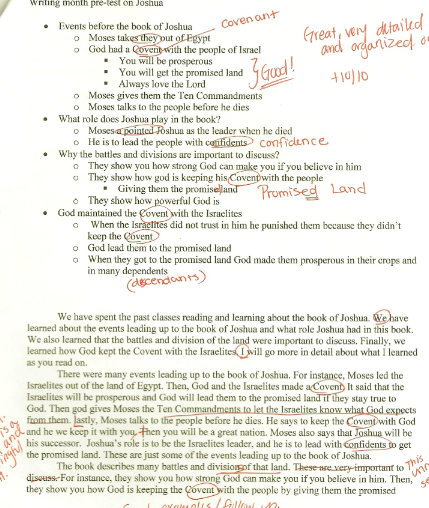 Writing month pre-test on Joshua
Covenant
• Events before the book of Joshua
o Moses takes they out of Egypt
o God had a Covent with the people of Israel
▪ You will be prosperous
▪ You will get the promised land
▪ Always love the Lord
Good!
Great, very detailed
and organized
+10/10
o Moses gives them the Ten Commandments
o Moses talks to the people before he dies
• What role does Joshua play in the book?
o Moses a pointed Joshua as the leader when he died
o He is to lead the people with confidents confidence
• Why the battles and divisions are important to discuss?
o They show you how strong God can make you if you believe in him
o They show how god is keeping his Covent with the people
▪ Giving them the promise land Promised Land
o They show how powerful God is
• God maintained the Covent with the Israelites
o When the Israelites did not trust in him he punished them because they didn't
keep the Covent
o God lead them to the promised land
o When they got to the promised land God made them prosperous in their crops and
in many dependents
(descendants)
We have spent the past classes reading and learning about the book of Joshua. We have
learned about the events leading up to the book of Joshua and what role Joshua had in this book.
We also learned that the battles and division of the land were important to discuss. Finally, we
learned how God kept the Covent with the Israelites. I will go more in detail about what I learned
as you read on.
There were many events leading up to the book of Joshua. For instance, Moses led the
Israelites out of the land of Egypt. Then, God and the Israelites made a Covent. It said that the
Israelites will be prosperous and God will lead them to the promised land if they stay true to
God. Then god gives Moses the Ten Commandments to let the Israelites know what God expects
from them. lastly, Moses talks to the people before he dies. He says to keep the Covent with God
and he we keep it with you, Then you will be a great nation. Moses also says that Joshua will be
his successor. Joshua's role is to be the Israelites leader, and he is to lead with Confidents to get
the promised land. These are just some of the events leading up to the book of Joshua.
The book describes many battles and divisions of that land. These are very important to
discuss. For instance, they show you how strong God can make you if you believe in him. Then,
they show you how God is keeping the Covent with the people by giving them the promised